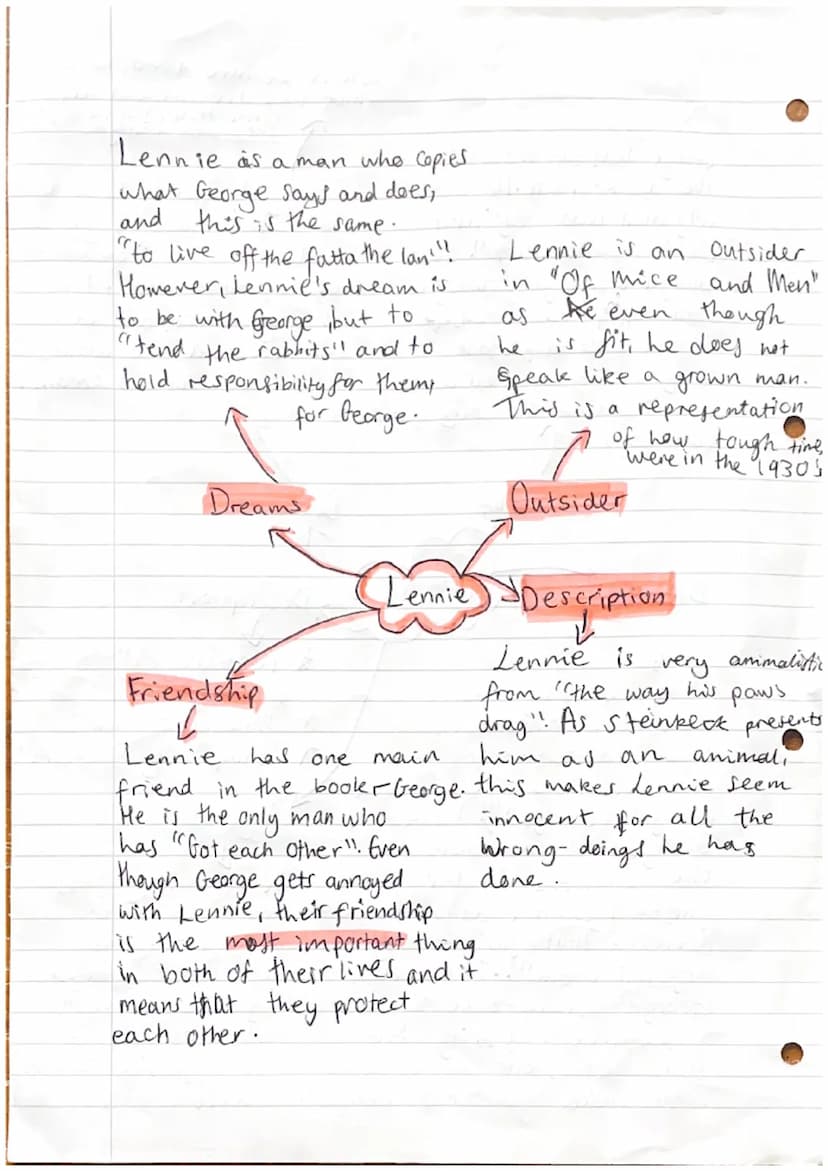 Lennie is a man who copies
what George says and does,
and this is the same.
"to live off the fatta the lan'"!
However, Lennie's dream is
to be with George, but to
"tend the rabbits" and to
hold responsibility for them,
for George.
Lennie is an outsider
in "Of Mice and Men"
as he even though
he is fit, he does not
speak like a grown man.
This is a representation
of how tough times
were in the 1930's
Dreams
Outsider
Lennie
Description
Friendship
Lennie is very animalistic
from "the way his paws
drag". As Steinbeck presents
him as an animal,
this makes Lennie seem
innocent for all the
wrong-doings he has
done.
Lennie has one main
friend in the book - George.
He is the only man who
has "Got each other". Even
though George gets annoyed
with Lennie, their friendship
is the most important thing
in both of their lives and it
means that they protect
each other.